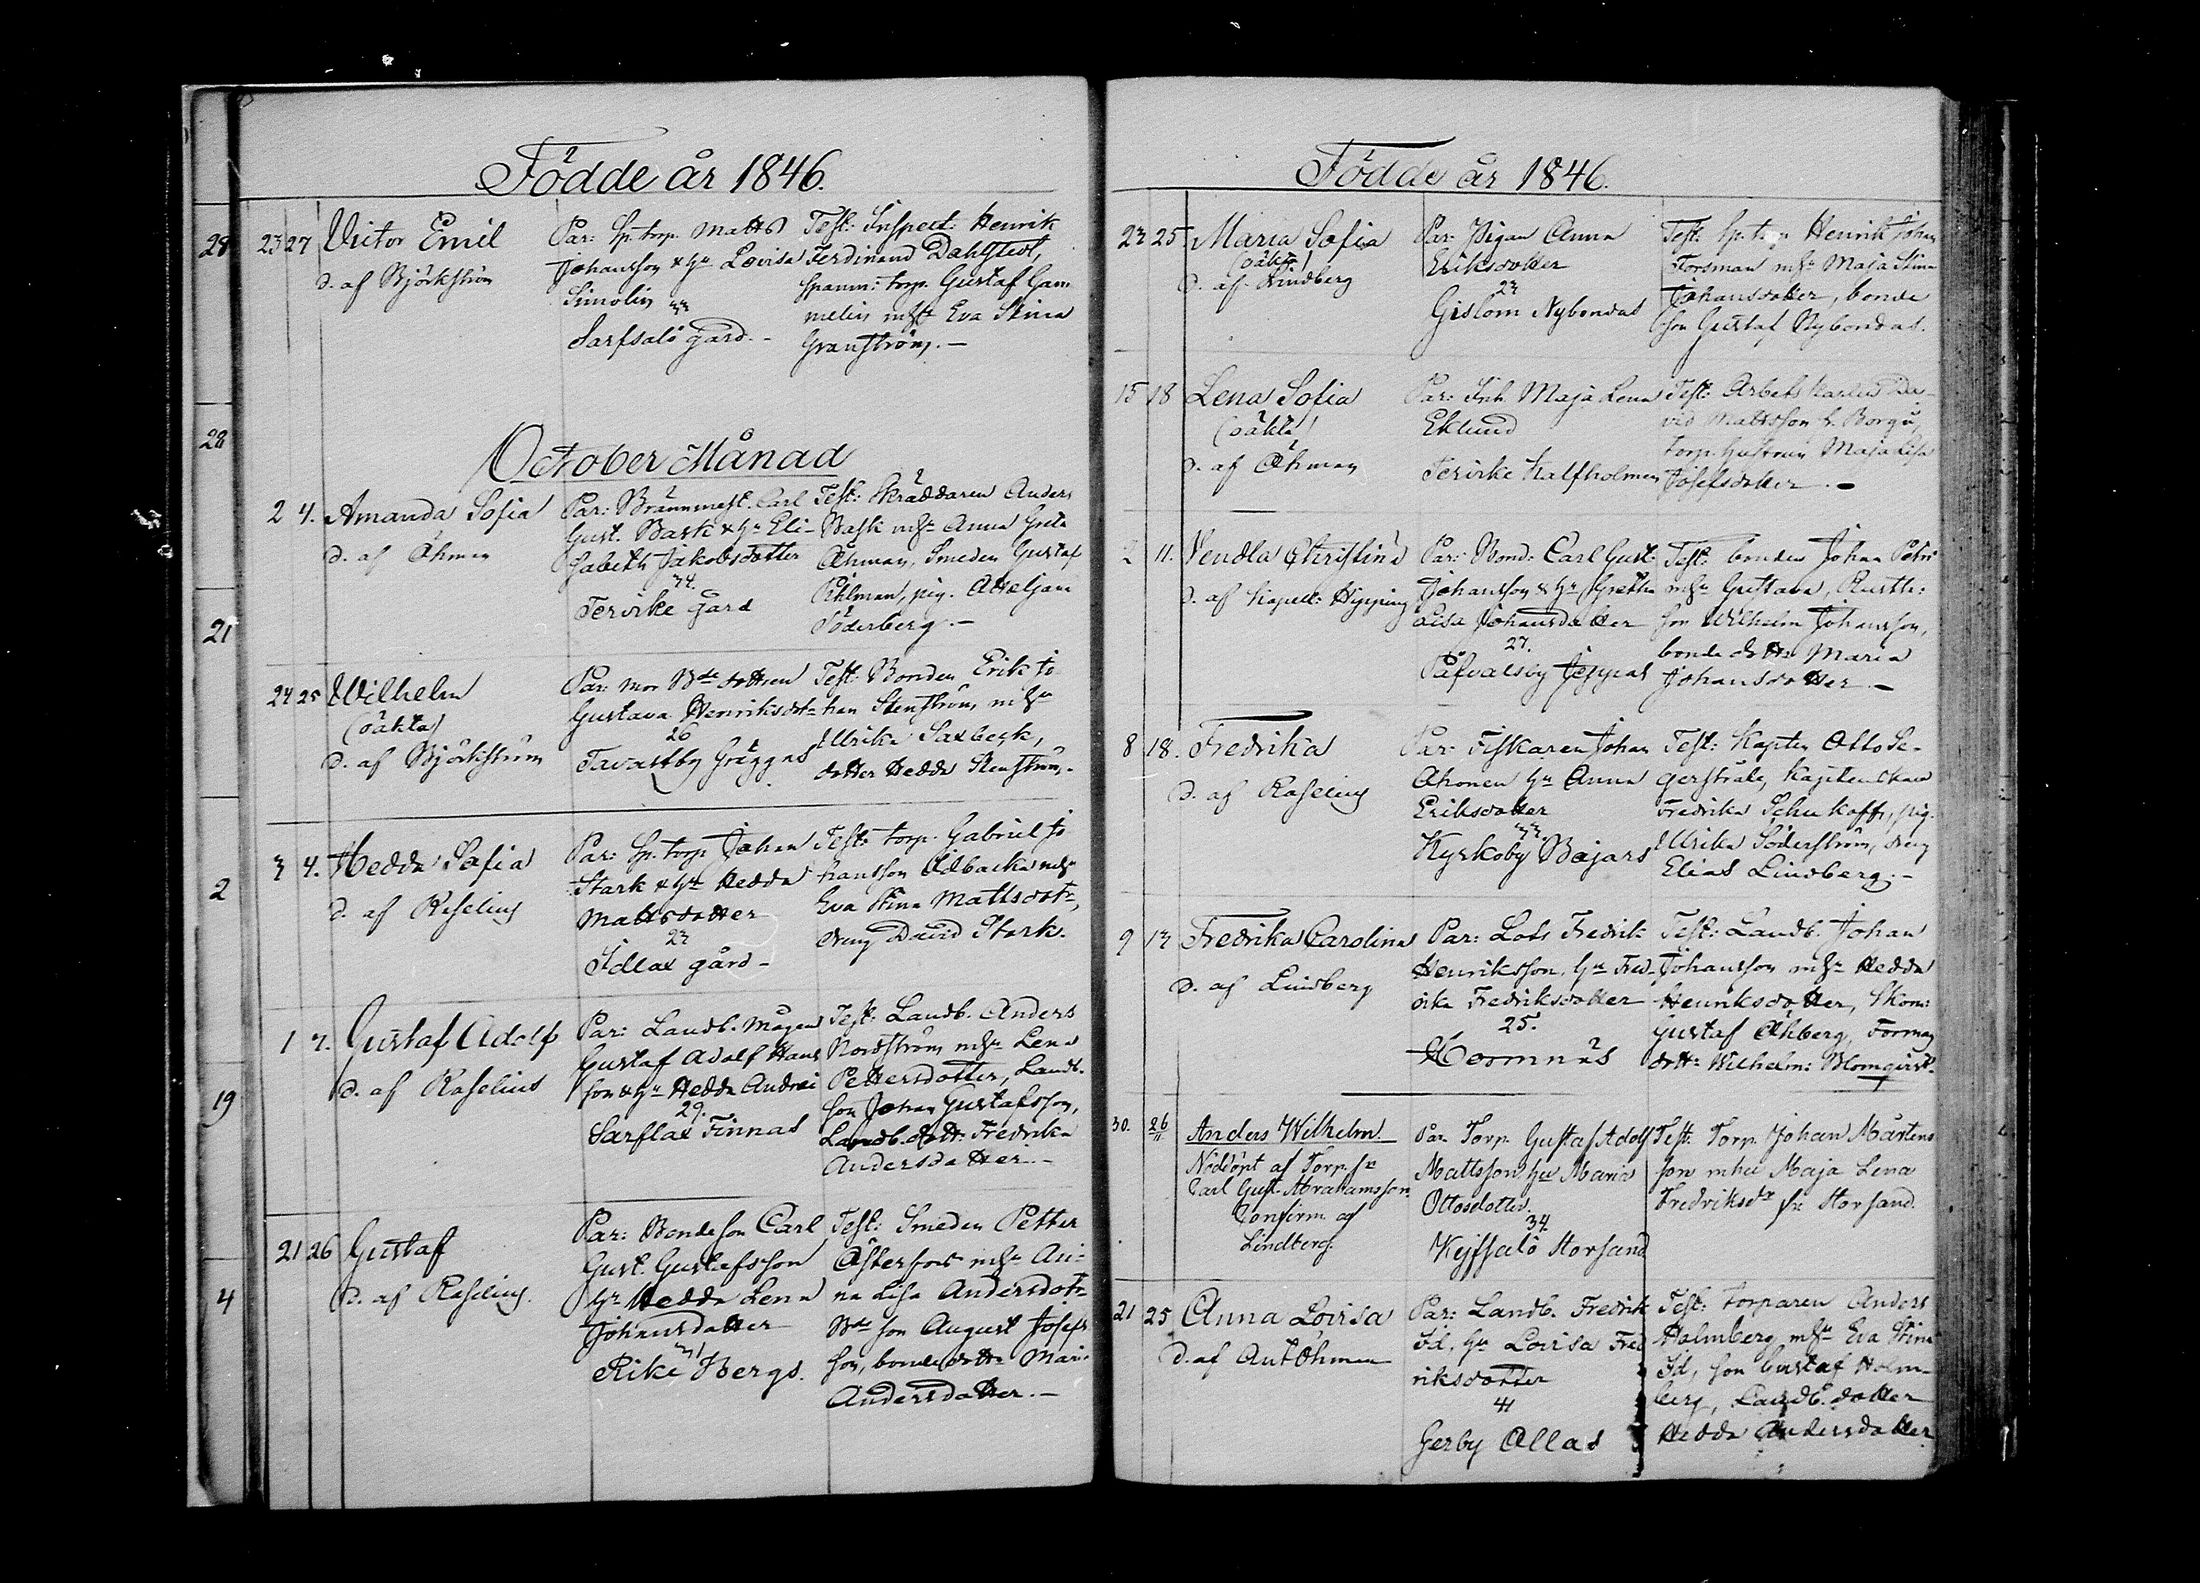 Födde år 1846.
28 23 27 Victor Emil
d. af Björkström
Par: Sp. torp. Matts
Johansson & Hu Lovisa
Simolin
33
Sarfsalö gård.
Test: Inspect: Henrik
Ferdinand Dahlstedt,
spanm: torp. Gustaf Gam
melin mhu Eva Stina
Granström.
28
October Månad
2 4. Amanda Sofia
d. af Öhman
Par: Brännmest. Carl
Gust. Bask & Hu Eli-
sabeth Jakobsdotter
34.
Tervike gård
Test: Skräddaren Anders
Bask mhu Anna Greta
Öhman, Smeden Gustaf
Pihlman, pig.
Söderberg.
21
24 25 Wilhelm
(oäkta)
d. af Björkström
Par: mor Bde dottren
Gustava Henriksdotr
26
Tavastby Gräggas
Test: Bonden Erik Jo
han Stenström mhu
Ulrika Saxbeck,
dotter Hedda Stenström.
2
3 4. Hedda Sofia
d. af Roselius
Par: Sp. torp. Johan
Stark & Hu Hedda
Mattsdotter
23
Idlax gård
Test: torp. Gabriel Jo
hansson Adbacka mhu
Eva Stina Mattsdotr,
dreng David Stark.
19
1 7. Gustaf Adolf
d. af Roselius
Par: Landb. mågen
Gustaf Adolf Hans
son & Hu Hedda
29.
Sarflax Finnas
Test: Landb. Anders
Nordström mhu Lena
Pettersdotter, Landb.
son Johan Gustafsson,
Landb. dottr. Fredrika
Andersdotter.
4
21 26 Gustaf
d. af Roselius.
Par: Bondeson Carl
Gust. Gustafsson
Hu Hedda Lena
Johansdotter
31
Rike Bergs.
Test: Smeden Petter
mhu An-
na Lisa Andersdotr
Bde son August Josefs
son, bonde dottr Mari
Andersdotter.
Födde år 1846.
23 25 Maria Sofia
(oäkta)
d. af Lindberg
Par: Pigan Anna
Eriksdotter
23
Gislom Nybondas
Test: Sp. torp Henrik Johan
Forsman mhu Maja Stina
Johansdotter, bonde
son Gustaf Nybondas.
15 18 Lena Sofia
(oäkta)
d. af Öhman
Par: Inh. Maja Lena
Eklund
Tervike Kalfholmen
Test: Arbets karlen Da-
vid Mattsson fr. Borgå,
torp. hustrun Maja Lisa
Josefsdotter.
2 11. Vendla Christina
d. af Kapell: Hipping
Par: Bond. Carl Gust:
Johansson & Hu Greta
Lisa Johansdotter
27.
Påfvalsby Jeppas
Test: bonden Johan Petri
mhu Gustava, Rustth:
son Wilhelm Johansson,
bonde dottr Maria
Johansdotter.
8 18. Fredrika
d. af Roselius
Par: Fiskaren Johan
Ahonen Hu Anna
Eriksdotter
33.
Kyrkoby Bajars
Test: Kapten Otto Se-
gerstråle, Kaptenskan
Fredrika Schukoff, pig.
Ulrika Söderström, dreng
Elias Lindberg.
9 13 Fredrika Carolina
d. af Lindberg
Par: Lots Fredrik
Henriksson, Hu Fred-
rika Fredriksdotter
25.
Hormnäs
Test: Landb. Johan
Johansson mhu Hedda
Henriksdotter, Skom:
Gustaf Öhberg, Forman
dottr: Wilhelm: Blomqvist.
30. 26/11 Anders Wilhelm.
Nöddöpt af Torp. sr
Carl Gust. Abrahamsson
Confirm. af
Lindberg.
Par. Torp. Gustaf Adolf
Mattsson hu Maria
Ottosdotter.
34.
Kejfsalö Storsand
Test: Torp. Johan Mårtens
son mhu Maja Lena
Fredriksdr fr. Storsand.
21 25 Anna Lovisa
d. af Ant Öhman
Par: Landb. Fredrik
Id, Hu Lovisa Fred
riksdotter
41
Gerby Ollas
Test: torparen Anders
Holmberg, mhu Eva Stina
Id, son Gustaf Holm-
berg, Landb. dotter
Hedda Andersdotter